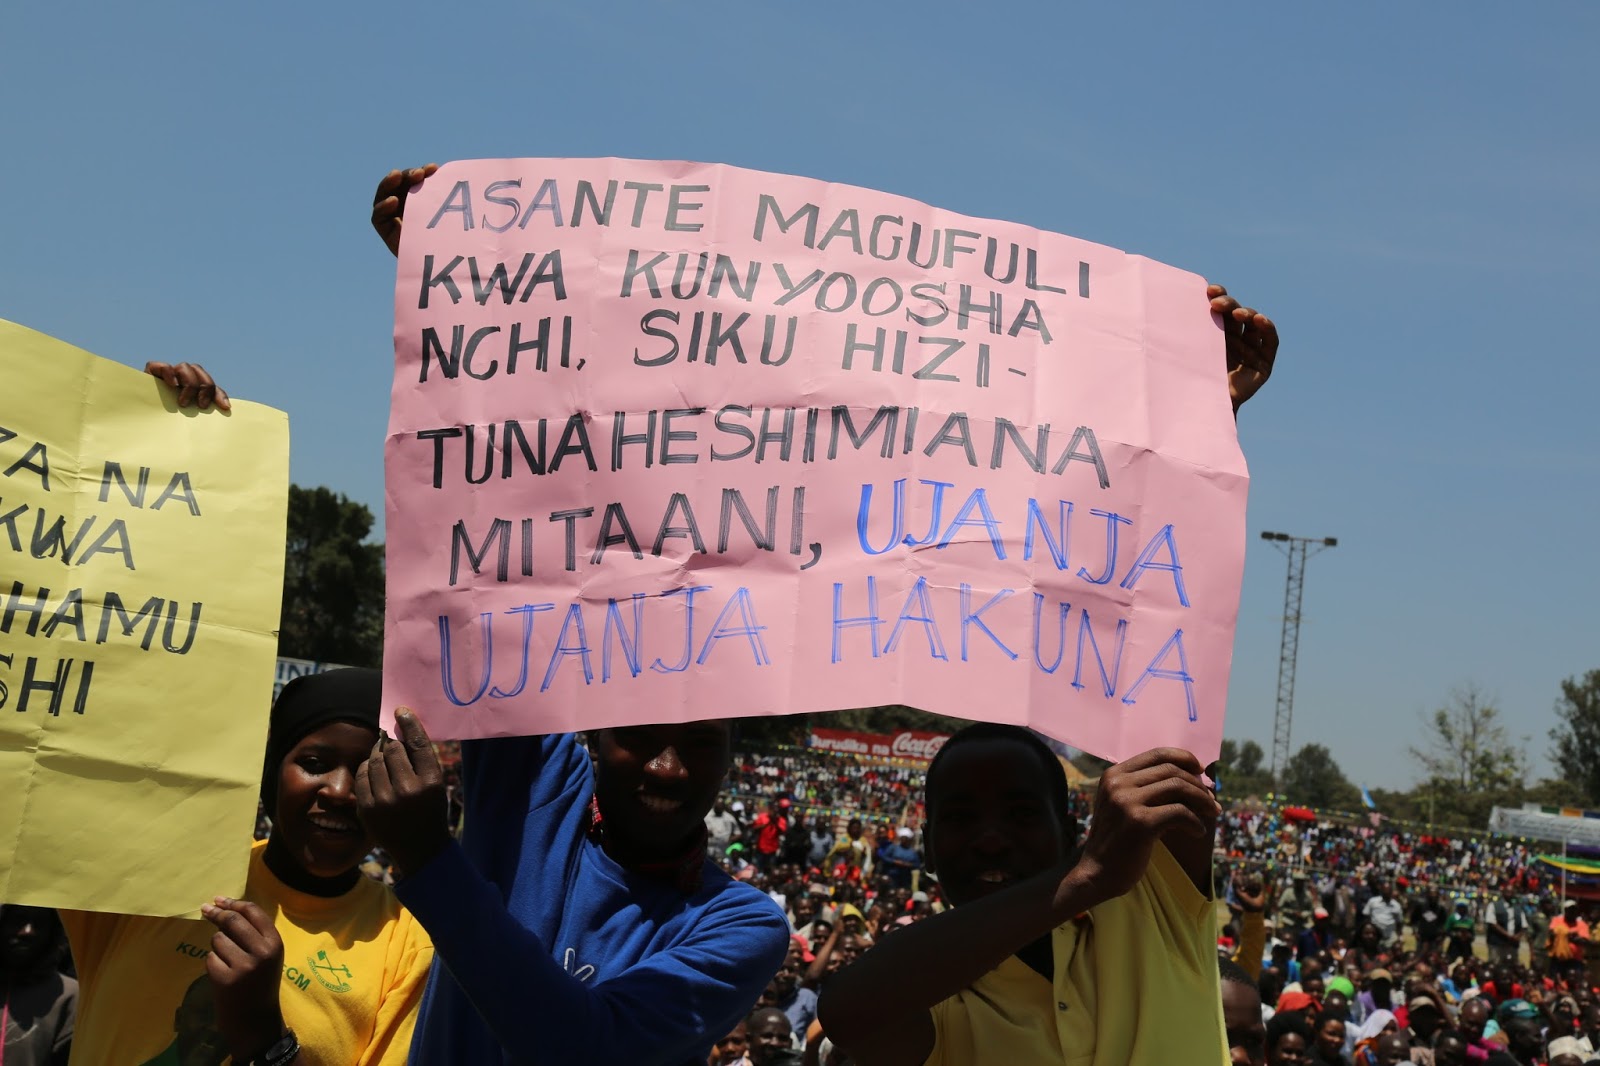 ASANTE MAGUFULI
KWA KUNYOOSHA
NCHI, SIKU HIZI-
TUNAHESHIMIANA
MITAANI, UJANJA
UJANJA HAKUNA
ZA NA
KWA
HAMU
SHI
Burudika na Coca-Cola
CCM